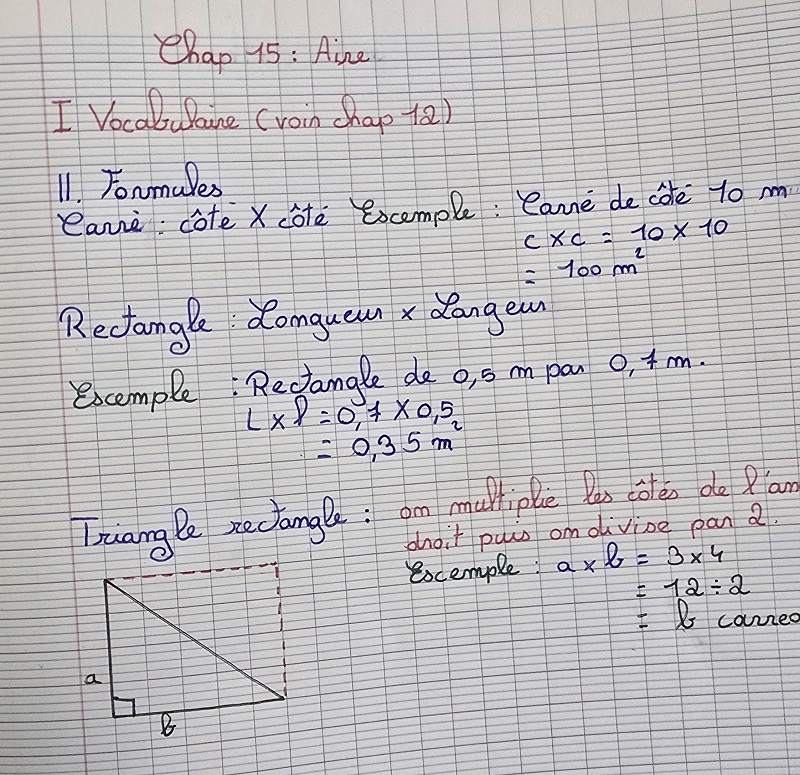 Chap 15 : Aire
I Vocabulaire (voir chap 12)
II. Formules
Carré : côté × côté Escemple : Carré de côté 10 m
c × c = 10 × 10
= 100 m²
Rectangle : Longueur × Largeur
Escemple : Rectangle de 0,5 m par 0,7 m.
L × l = 0,7 × 0,5
= 0,35 m²
Triangle rectangle : on multiplie les côtés de l'an
droit puis on divise par 2.
Escemple : a × b = 3 × 4
= 12 ÷ 2
= 6 carreo
a
b